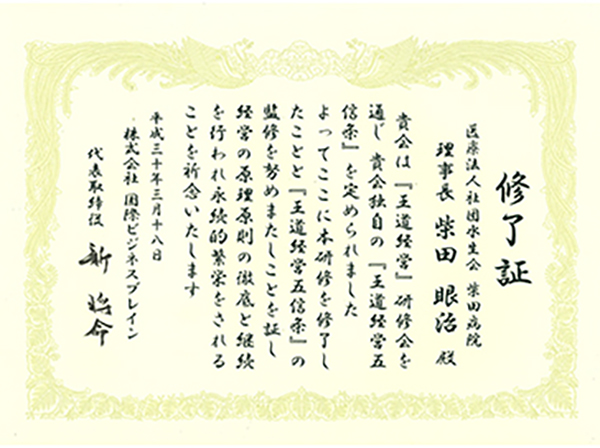 修了証
医療法人社団永生会 柴田病院
理事長 柴田 眼治 殿
貴会は『王道経営』研修会を
通じ 貴会独自の『王道経営五
信条』を定められました
よってここに本研修を修了し
たことと『王道経営五信条』の
監修を努めましたことを証し
経営の原理原則の徹底と継続
を行われ永続的繁栄をされる
ことを祈念いたします
平成三十年三月十八日
株式会社 国際ビジネスブレイン
代表取締役 新